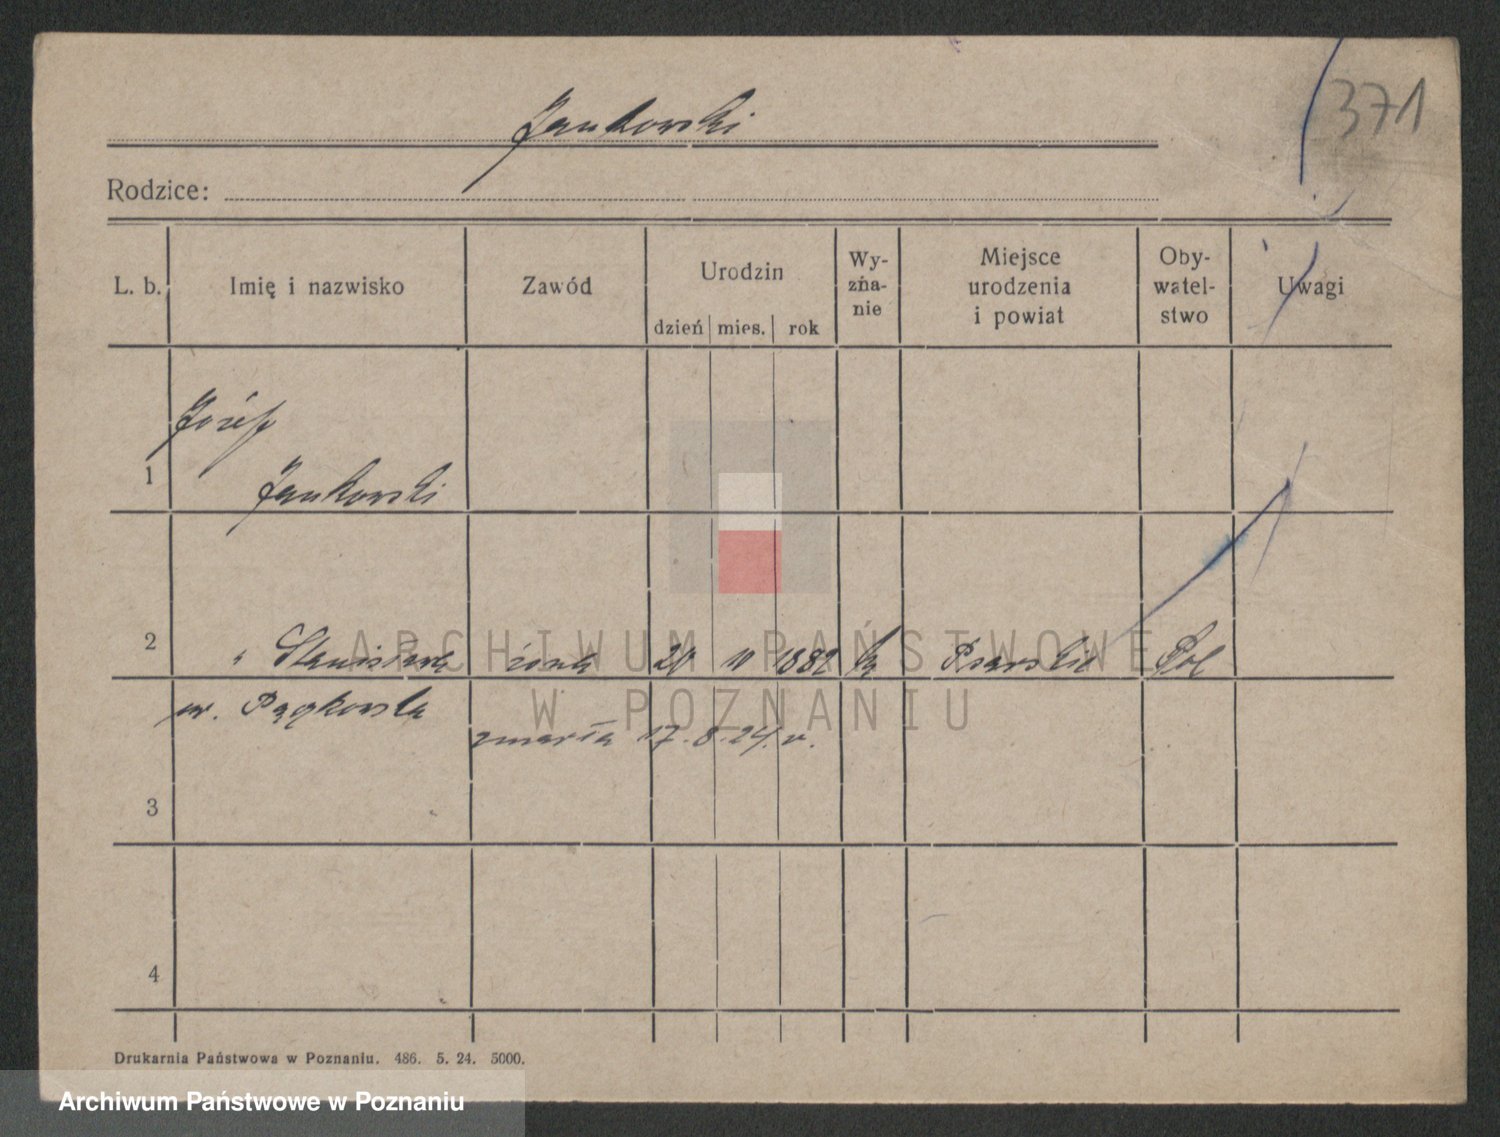 371
Jankowski
Rodzice:
L. b. Imię i nazwisko Zawód Urodzin dzień mies. rok Wy-zna-nie Miejsce urodzenia i powiat Oby-watel-stwo Uwagi
Józef
1 Jankowski
2 " Stanisława żona 20 11 1882 Psarskie Pol
ur.
zmarła 17.8.24. r.
3
4
Drukarnia Państwowa w Poznaniu. 486. 5. 24. 5000.
ARCHIWUM PAŃSTWOWE
W POZNANIU
Archiwum Państwowe w Poznaniu